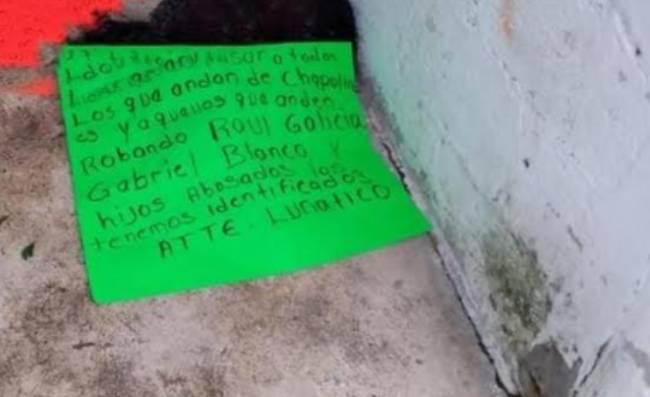 pasar a todos
Los que andan de Chapolin
es y aquellos que anden
Robando Raul Galicia
Gabriel Blanco y
hijos Abosados los
tenemos identificados
ATTE. LUNATICO